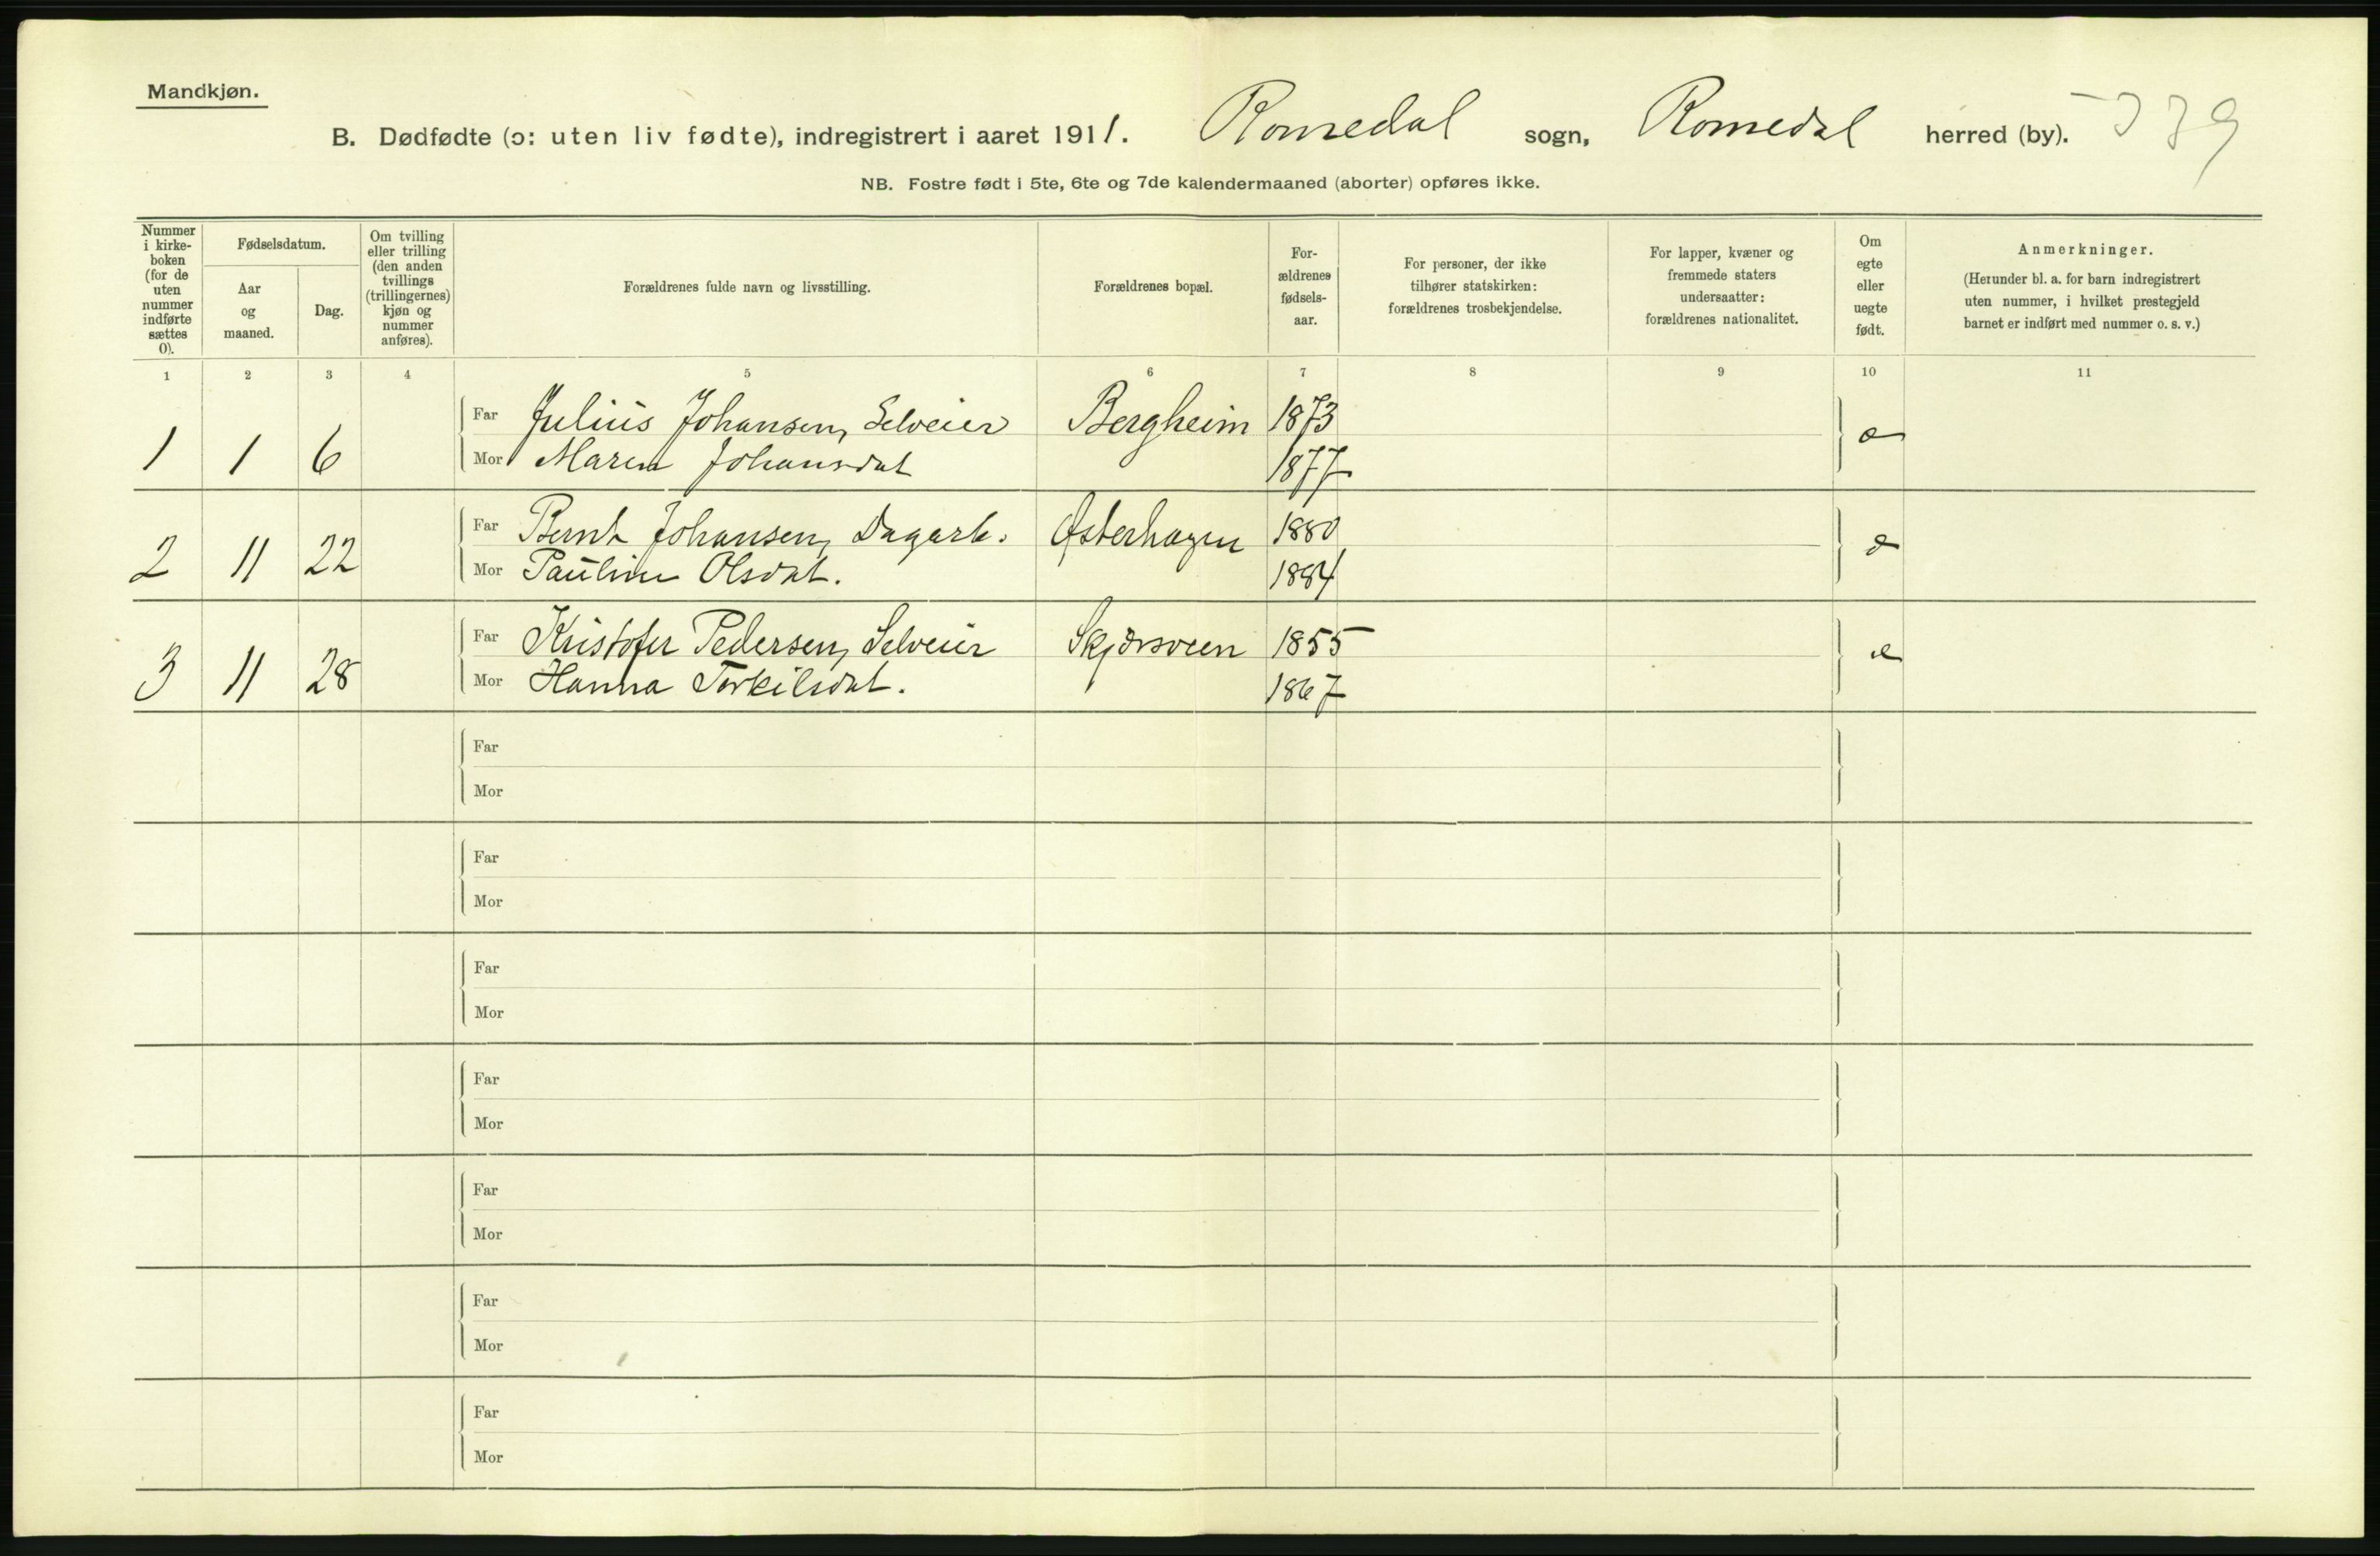 Mandkjøn.
B. Dødfødte (ɔ: uten liv fødte), indregistrert i aaret 1911. Romedal sogn, Romedal herred (by).
NB. Fostre født i 5te, 6te og 7de kalendermaaned (aborter) opføres ikke.
Nummer i kirke-boken (for de uten nummer indførte sættes 0).
Fødselsdatum.
Aar og maaned.
Dag.
Om tvilling eller trilling (den anden tvillings (trillingernes) kjøn og nummer anføres).
Forældrenes fulde navn og livsstilling.
Forældrenes bopæl.
For-ældrenes fødsels-aar.
For personer, der ikke tilhører statskirken: forældrenes trosbekjendelse.
For lapper, kvæner og fremmede staters undersaatter: forældrenes nationalitet.
Om egte eller uegte født.
Anmerkninger.
(Herunder bl. a. for barn indregistrert uten nummer, i hvilket prestegjeld barnet er indført med nummer o. s. v.)
1 2 3 4 5 6 7 8 9 10 11
1 1 6 Far Julius Johansen, Selveier Bergheim 1873 e
Mor Maren Johansdat 1877
2 11 22 Far Bernt Johansen, Dagarb. Østerhagen 1880 e
Mor Pauline Olsdat. 1884
3 11 28 Far Kristofer Pedersen, Selveier Skjørsveen 1855 e
Mor Hanna Torkilsdat. 1867
Far
Mor
Far
Mor
Far
Mor
Far
Mor
Far
Mor
Far
Mor
Far
Mor